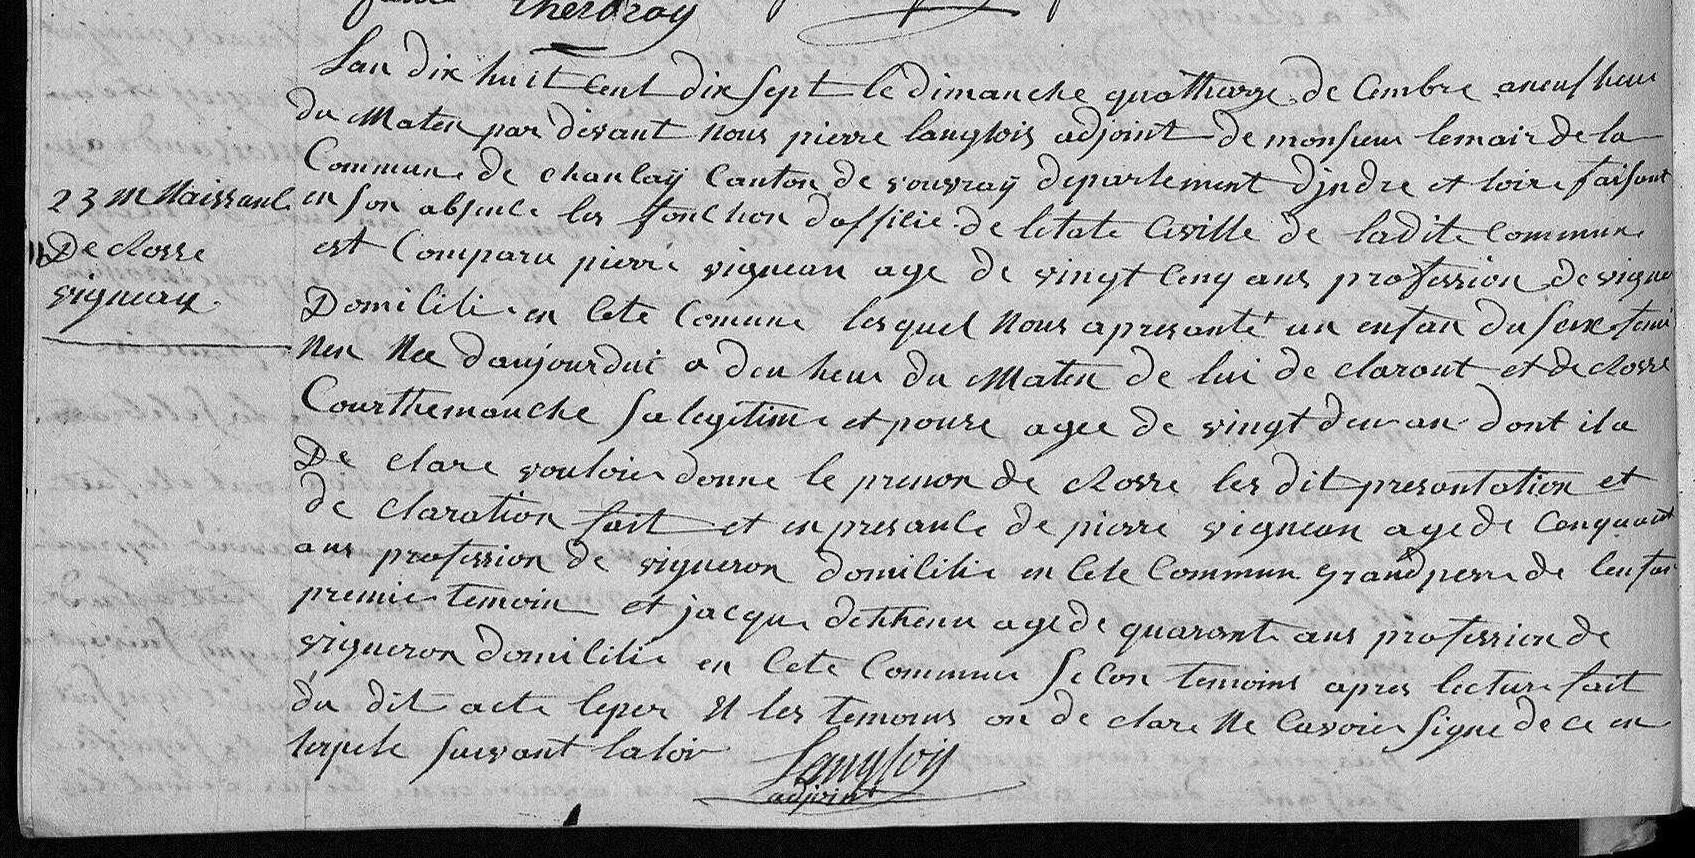 Therdroy
Lan dix huit Cent dix Sept le dimanche quattharze de Cembre aneuf heur
du Maten par devant nous pierre langlois adjoint de monsieur lemair de la
Commune de chanlaÿ Canton de vouvraÿ departement djndre et loire faisant
en son absence les fonchon dofficie de letate Civille de ladite Commune
est Comparu pierre vigneau age de vingt Cenq ans profession de vigne
Domicilie en Cete Comune lesquel nous apresanté un enfan du sexe femi
nen Nee daujourdui a deu heur du Maten de lui de clarant et de Rosse
Courthemanche sa legitime et pouse agee de vingt deu an dont il a
De clare vouloire donne le prenon de Rosse les dit presantation et
de claration fait et en presance de pierre vigneau age de Cenquant
ans profession de vigneron domicilie en Cete Commun grand pere de lenfan
premie temoin et jacque dethenu age de quarante ans profession de
vigneron domicilie en Cete Commune Secon temoins apres lecture fait
du dit acte leper et les temoins on de clare Ne Cavoire Signe de ce en
terpele suivant laloi
Langlois
adjoint
23 m Naissance
De Rosse
vigneau